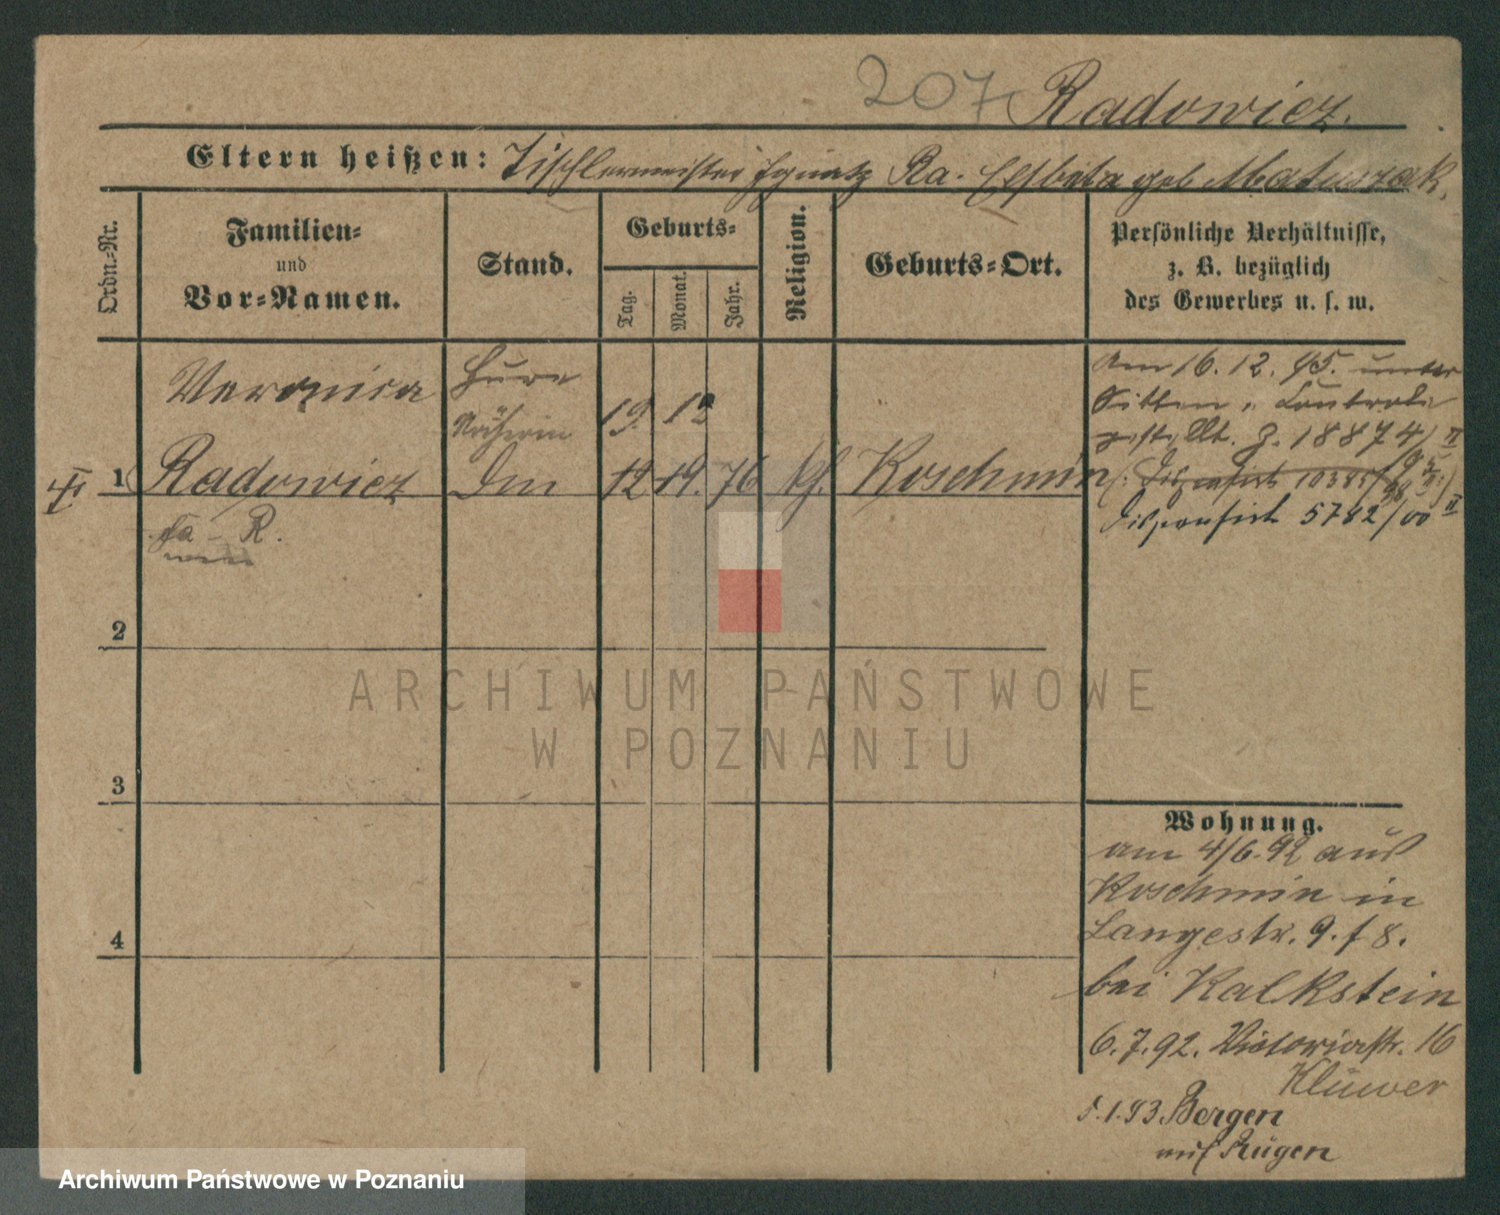 207 Radowicz.
Eltern heißen: Tischlermeister Ignatz Ra. geb Matuszak.
Ordn.-Nr.
Familien- und Vor-Namen.
Stand.
Geburts-
Tag. Monat. Jahr.
Religion.
Geburts-Ort.
Persönliche Verhältnisse,
z. B. bezüglich
des Gewerbes u. s. w.
Veronica
Hure
Näherin
19. 12
1 Radowicz
12 19. 76 kh. Koschmin
Am 16. 12. 95. unter
Sitten- Controle
gestellt. J. 18874/ II
10385/98
5782/00 II
R.
2
3
4
Wohnung.
am 4/6.92 aus
Koschmin in
Langestr. 9. f 8.
bei Kalkstein
6. 7. 92. Victoriastr. 16
Klüwer
5. 1. 93. Bergen
auf Rügen
ARCHIWUM PAŃSTWOWE
W POZNANIU
Archiwum Państwowe w Poznaniu